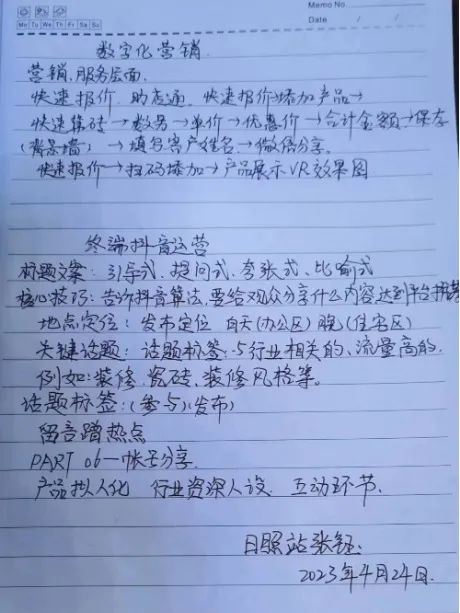 Memo No.
Mo Tu We Th Fr Sa Su
Date / /
数字化营销.
营销、服务层面.
快速报价 助店通、快速报价→添加产品→
快速铺砖→数量→单价→优惠价→合计金额→保存
(背景墙) →填写客户姓名→微信分享.
快速报价→扫码添加→产品展示VR效果图
终端抖音运营
标题文案: 引导式、提问式、夸张式、比喻式
核心技巧: 告诉抖音算法,要给观众分享什么内容达到平台推荐
地点定位: 发布定位 白天(办公区) 晚(住宅区)
关键话题: 话题标签:与行业相关的、流量高的.
例如:装修、瓷砖、装修风格等。
话题标签:(参与)(发布)
留言蹭热点
PART 06—帐号分享.
产品拟人化 行业资深人设. 互动环节.
日照站张钰.
2023年4月24日.